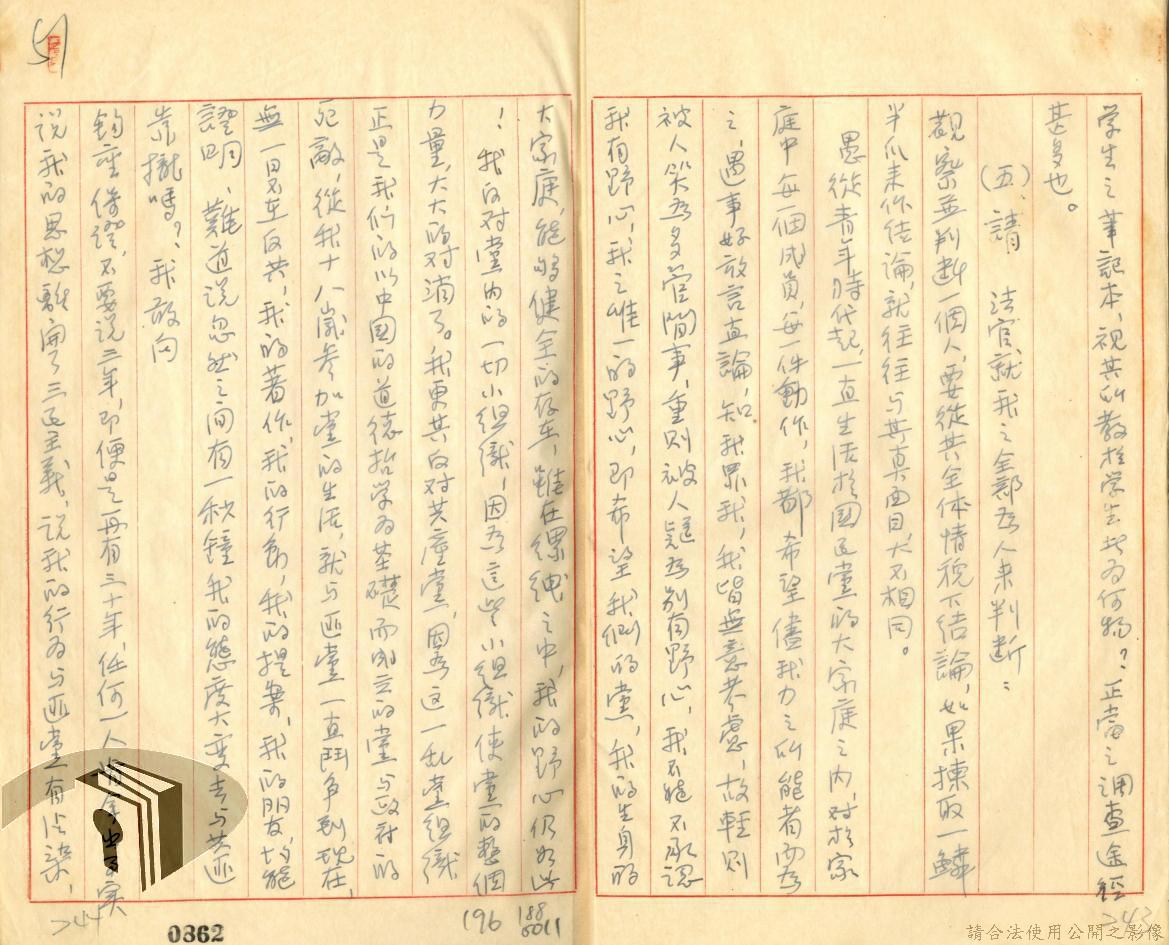 学生之筆記本，視其所教於学生者为何物？，正當之調查途徑
甚多也。
(五)、請　法官就我之全部为人来判断：
觀察並判断一個人，要從其全体情貌下結論，如果揀取一鱗
半爪来作结論，就往往与其真面目大不相同。
愚從青年時代起，一直生活於國民黨的大家庭之内，对於家
庭中每一個成員，每一件動作，我都希望儘我力之所能者而为
之，遇事好敢言直論，知我罪我，我皆無意考慮，故輕則
被人笑为多管閒事，重則被人疑为别有野心，我不能不承認
我有野心，我之唯一的野心，即希望我们的黨，我的生身的
大家庭，能够健全的存在，雖在縲绁之中，我的野心仍如此
！我反对黨内的一切小组織，因为這些小组織使黨的整個
力量，大大的对消了。我更其反对共產黨，因为这一乱黨组織
正是我们的以中国的道德哲学为基礎而創立的黨与政府的
死敵，從我十八歲參加黨的生活，就与匪黨一直鬥争到現在，
無一日不在反共，我的著作，我的行動，我的提案，我的朋友，均能
證明，難道说忽然之间有一秒鐘我的態度大变去与共匪
靠攏嗎？，我敢向
鈞座保證，不要说二年，即便是再有三十年，任何一人
说我的思想離開了三民主義，说我的行为与匪黨有沾染，
243
244
196
188
0362
請合法使用公開之影像